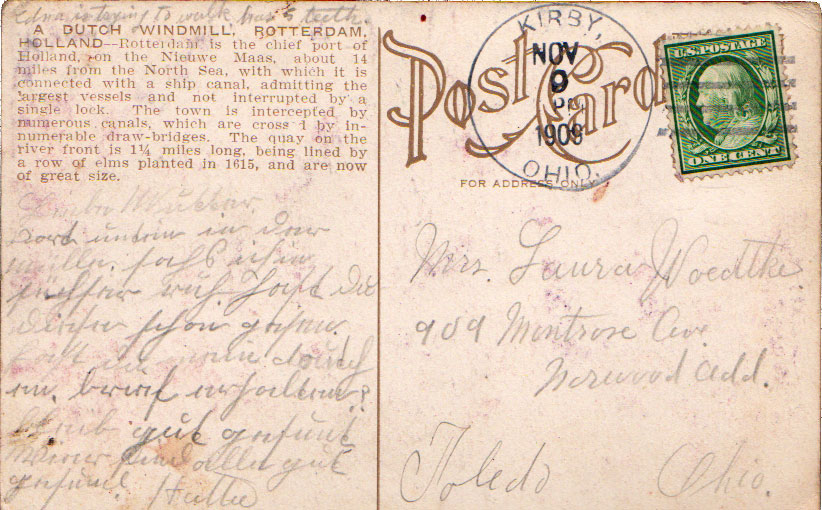 Edna is trying to walk has 5 teeth.
A DUTCH WINDMILL, ROTTERDAM,
HOLLAND—Rotterdam is the chief port of
Holland, on the Nieuwe Maas, about 14
miles from the North Sea, with which it is
connected with a ship canal, admitting the
largest vessels and not interrupted by a
single lock. The town is intercepted by
numerous canals, which are cross d by in-
numerable draw-bridges. The quay on the
river front is 1¼ miles long, being lined by
a row of elms planted in 1615, and are now
of great size.
Liebe Mutter.
Dort unten in der
Mühle
hast du
schon
brief erhalten?
bleib gut gesunt
alle gut
gesunt. Huttie
Post Card
KIRBY,
NOV
9
1909
OHIO.
U.S. POSTAGE
ONE CENT
FOR ADDRESS ONLY
Mrs. Laura Woedtke
909 Montrose Ave.
Norwood Add.
Toledo Ohio.